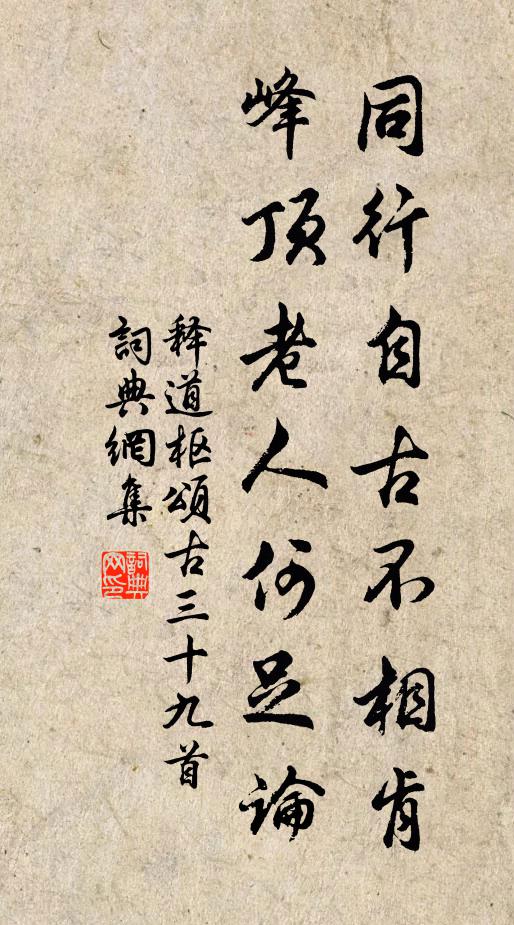 同行自古不相肯
峰顶老人何足论
释道枢頌古三十九首
詞典網集
詞典网印